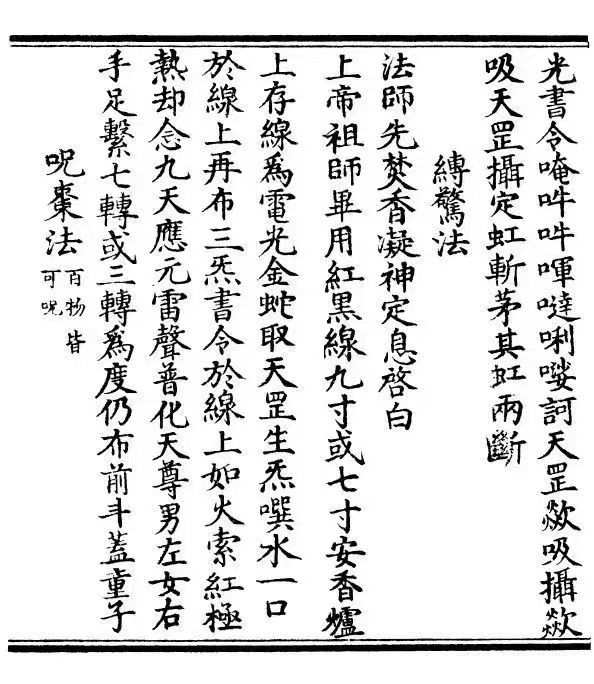 光書令唵吽吽㖮噠唎娑訶天罡歘吸攝歘
吸天罡攝定虹斬茅其虹兩斷
縛驚法
法師先焚香凝神定息啓白
上帝祖師畢用紅黑線九寸或七寸安香爐
上存線爲電光金蛇取天罡生炁噀水一口
於線上再布三炁書令於線上如火索紅極
熱却念九天應元雷聲普化天尊男左女右
手足繫七轉或三轉爲度仍布前斗蓋童子
呪棗法百物皆
可呪